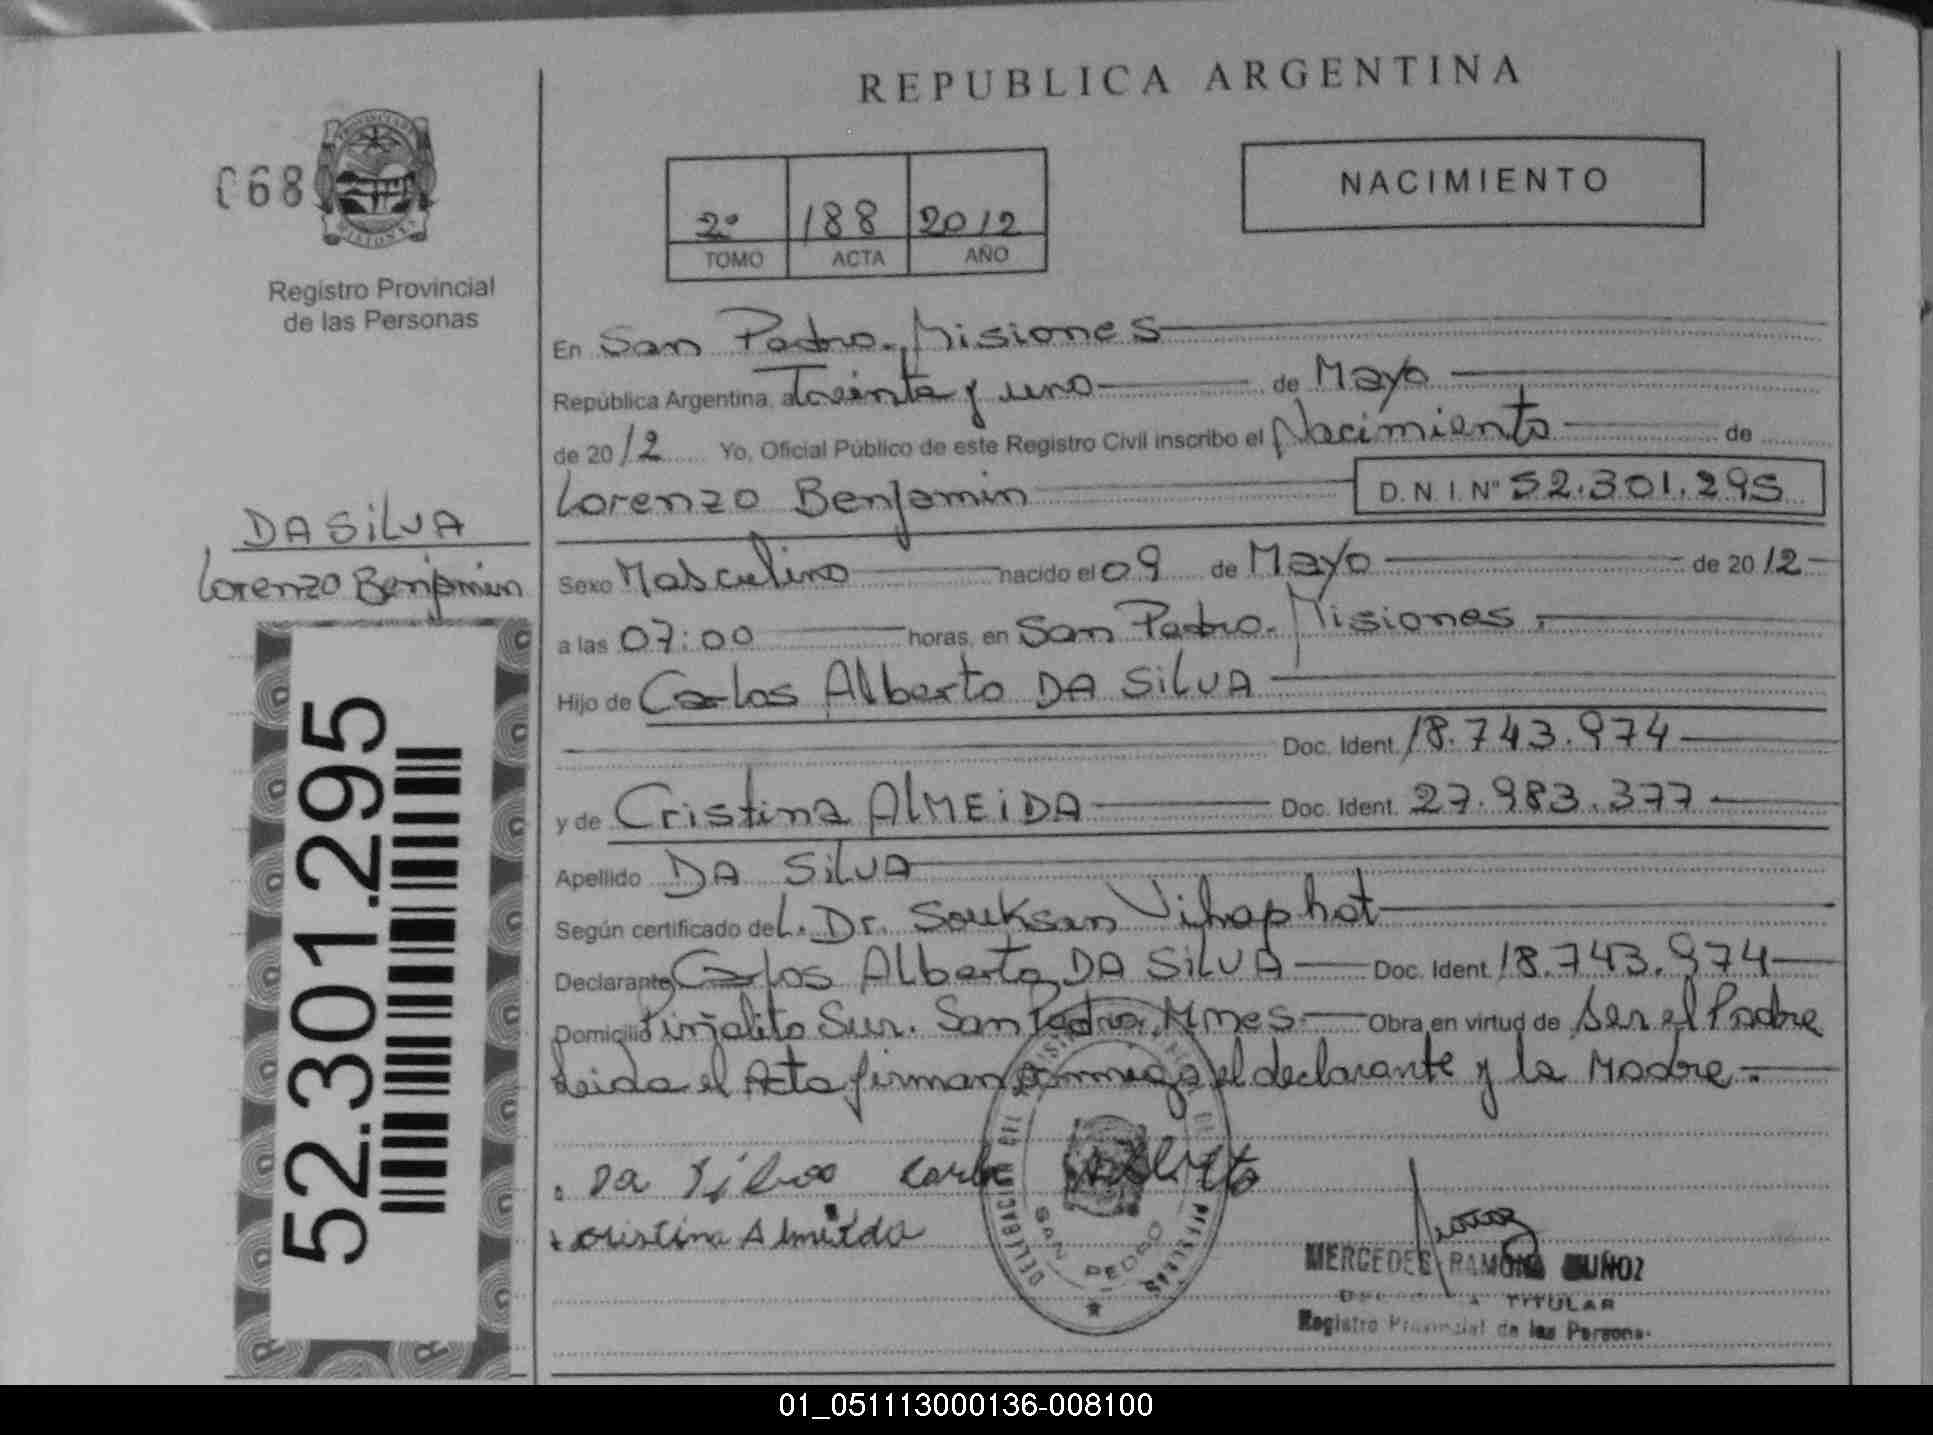 REPUBLICA ARGENTINA
068
Registro Provincial
de las Personas
2º 188 2012
TOMO ACTA AÑO
NACIMIENTO
En San Pedro. Misiones
República Argentina, a Treinta y uno de Mayo
de 2012 Yo, Oficial Público de este Registro Civil inscribo el Nacimiento de
Lorenzo Benjamin D.N.I. Nº 52.301.295
DA SILVA
Lorenzo Benjamin
Sexo Masculino nacido el 09 de Mayo de 2012
a las 07:00 horas, en San Pedro. Misiones.
Hijo de Carlos Alberto DA SILVA
Doc. Ident. 18.743.974
y de Cristina ALMEIDA Doc. Ident. 27.983.377
Apellido DA SILVA
Según certificado del. Dr. Souksan Vihaphat
Declarante Carlos Alberto DA SILVA Doc. Ident. 18.743.974
Domicilio Pinjalito Sur. San Pedro. Mnes. Obra en virtud de ser el Padre
Leida el Acta firman conmigo el declarante y la Madre.
Da Silva Carlos Alberto
Cristina Almeida
52.301.295
DELEGACION DEL REGISTRO DE PERSONAS
SAN PEDRO
MERCEDES RAMONA MUÑOZ
TITULAR
Registro Provincial de las Personas
01_051113000136-008100